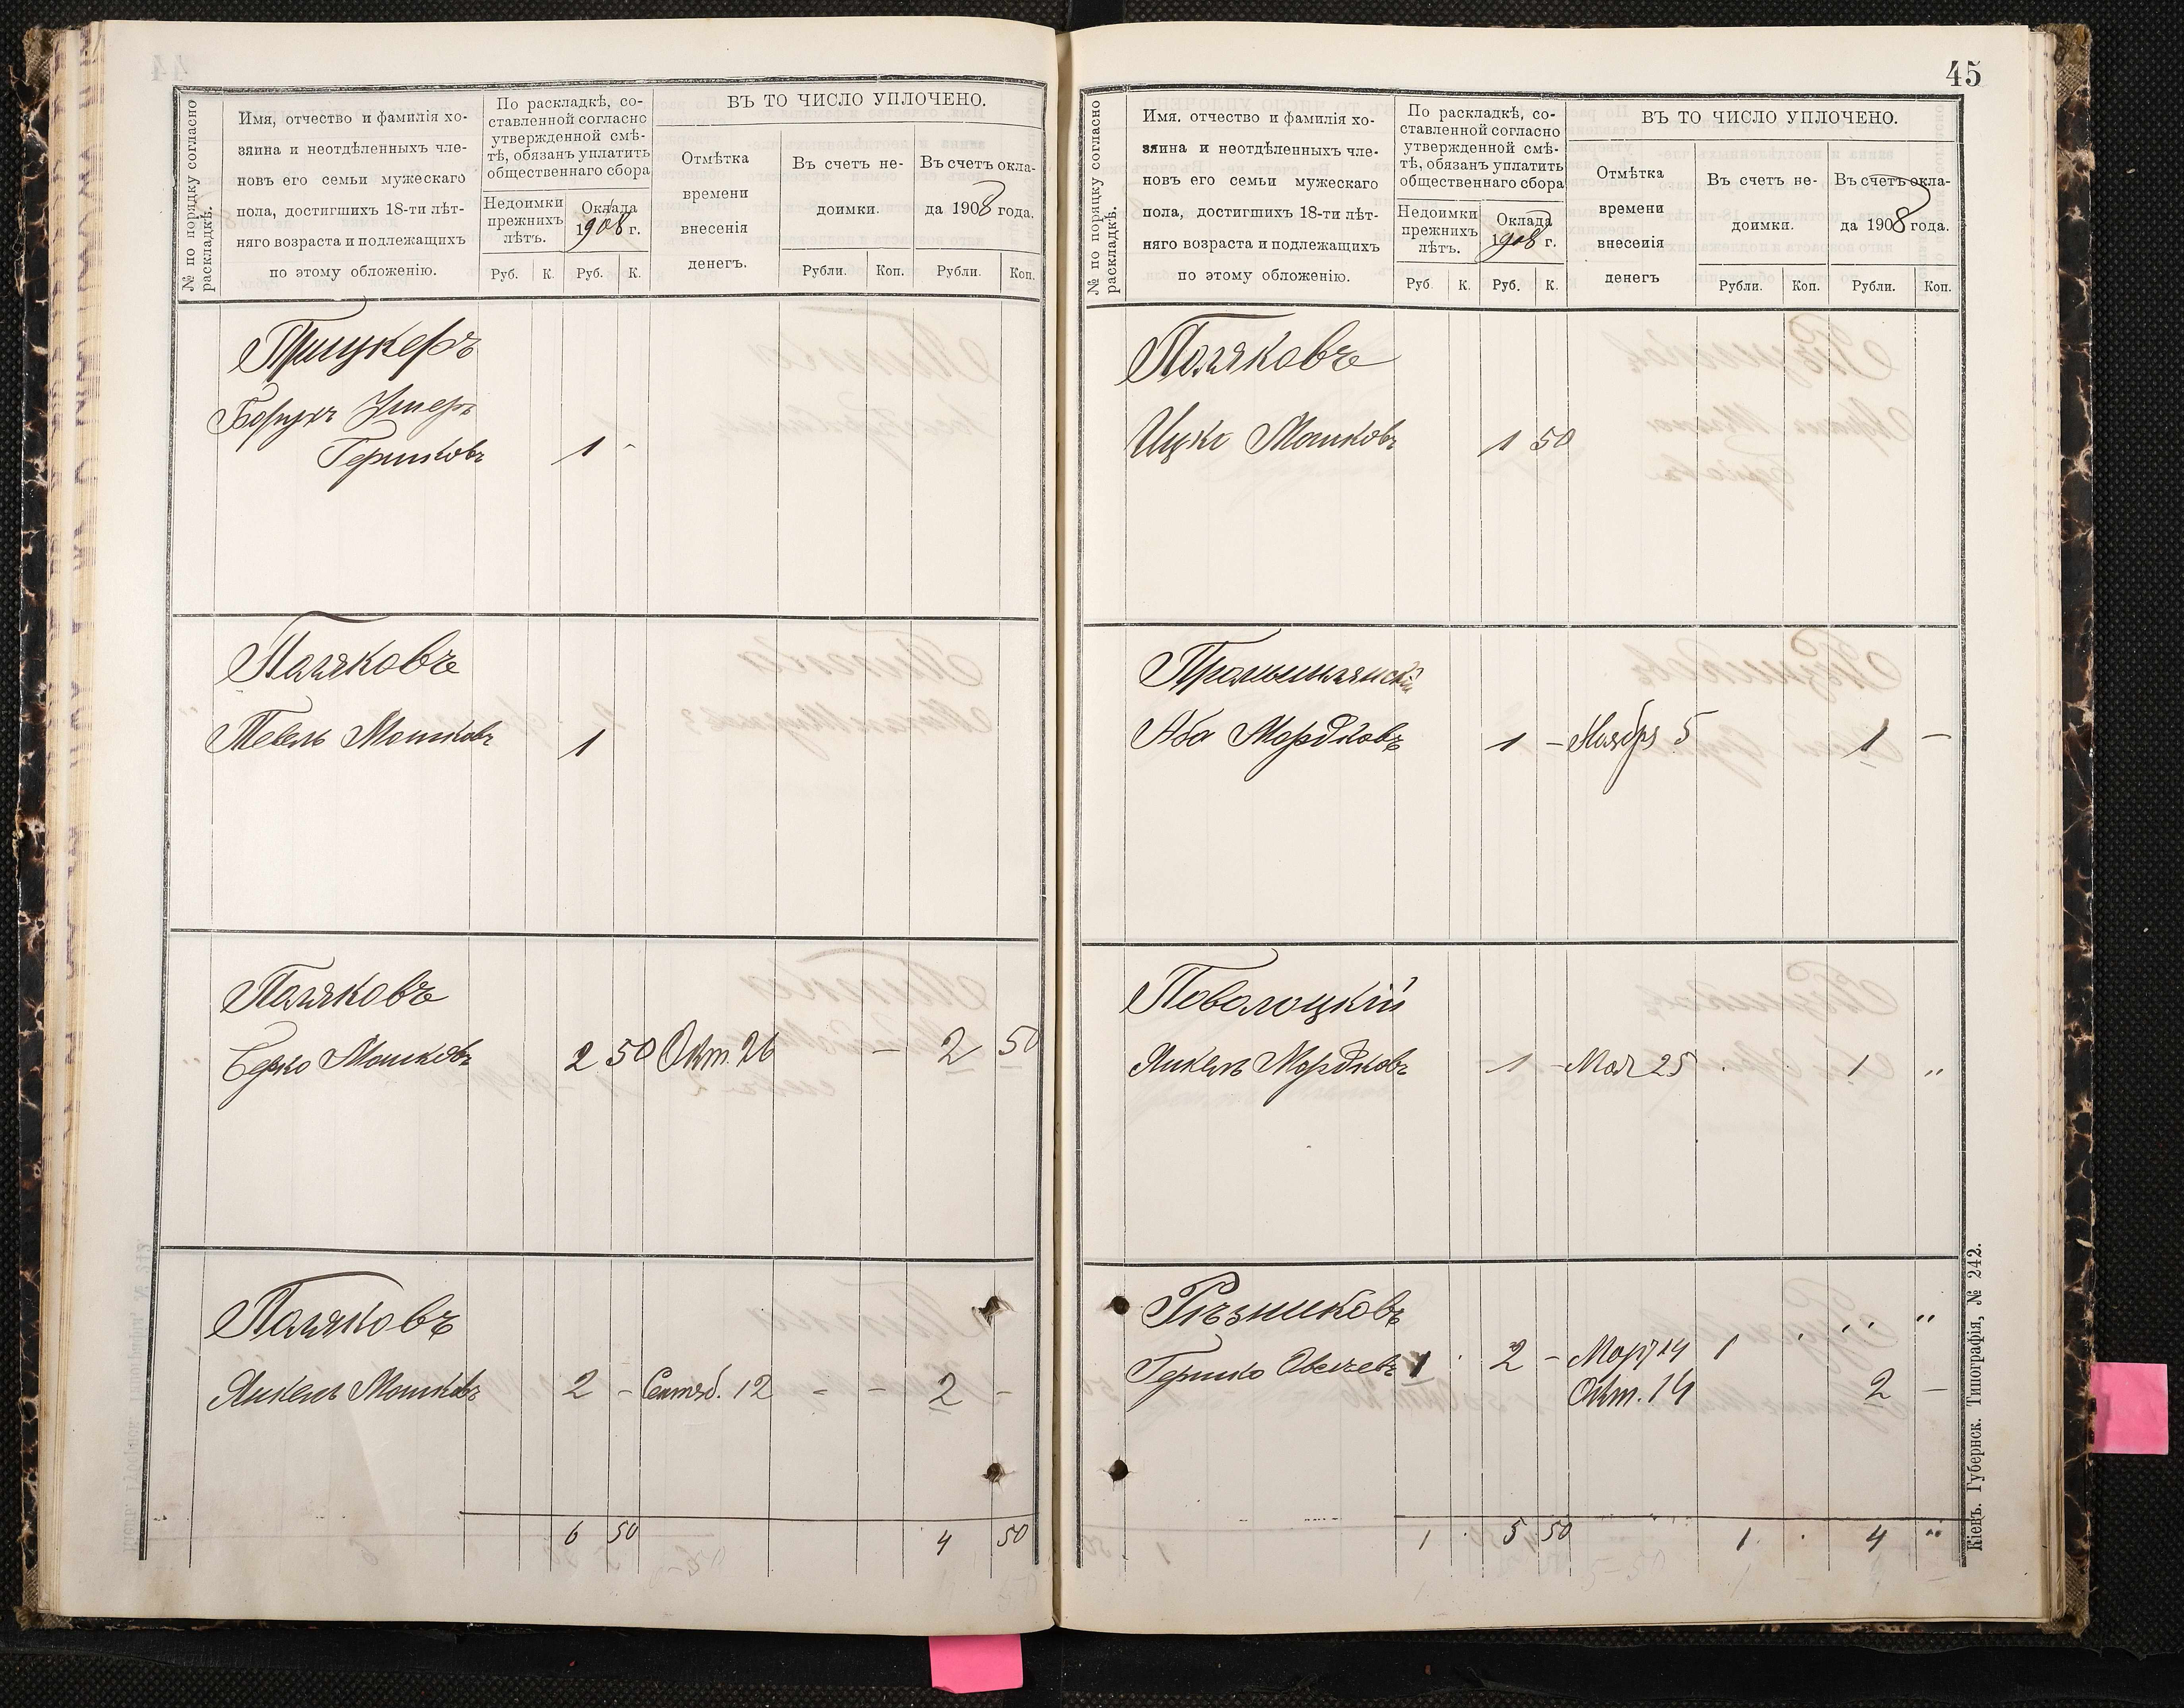 № по порядку согласно раскладкѣ.
Имя, отчество и фамилія хо-
зяина и неотдѣленныхъ чле-
новъ его семьи мужескаго
пола, достигшихъ 18-ти лѣт-
няго возраста и подлежащихъ
по этому обложенію.
По раскладкѣ, со-
ставленной согласно
утвержденной смѣ-
тѣ, обязанъ уплатить
общественнаго сбора
Недоимки
прежнихъ
лѣтъ.
Оклада
1908 г.
Руб. К. Руб. К.
ВЪ ТО ЧИСЛО УПЛОЧЕНО.
Отмѣтка
времени
внесенія
денегъ.
Въ счетъ не-
доимки.
Въ счетъ окла-
да 1908 года.
Рубли. Коп. Рубли. Коп.
Прицкеръ
Борухъ Ушеръ
Гершковъ 1 -
Поляковъ
Тевель Мошковъ 1
Поляковъ
Берко Мошковъ 2 50 Окт. 26 — 2 50
Поляковъ
Янкель Мошковъ 2 - Сентяб. 12 - - 2 -
6 50 4 50
45
№ по порядку согласно раскладкѣ.
Имя. отчество и фамилія хо-
зяина и неотдѣленныхъ чле-
новъ его семьи мужескаго
пола, достигшихъ 18-ти лѣт-
няго возраста и подлежащихъ
по этому обложенію.
По раскладкѣ, со-
ставленной согласно
утвержденной смѣ-
тѣ, обязанъ уплатить
общественнаго сбора
Недоимки
прежнихъ
лѣтъ.
Оклада
1908 г.
Руб К. Руб. К.
ВЪ ТО ЧИСЛО УПЛОЧЕНО.
Отмѣтка
времени
внесенія
денегъ
Въ счетъ не-
доимки.
Въ счетъ окла-
да 1908 года.
Рубли. Коп. Рубли. Коп.
Поляковъ
Ицко Мошковъ 1 50
Промышлянскій
Аба Мордковъ 1 — Ноября 5 1 —
Поволоцкій
Янкель Мордковъ 1 - Мая 25 1 „
Рѣзниковъ
Гершко Овсеевъ 1 . 2 - Мар. 14 1 . „ „
Окт. 14 2 —
1 . 5 50 1 . 4 „
Кіевъ. Губернск. Типографія, № 242.